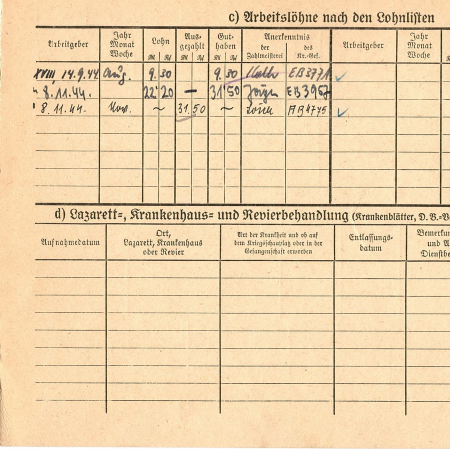 c) Arbeitslöhne nach den Lohnlisten
Arbeitgeber Jahr Monat Woche Lohn Aus- gezahlt Gut- haben Anerkenntnis der Zahlmeisterei des Kr.-Gef. Arbeitgeber Jahr Monat Woche
ℛℳ ℛ₰ ℛℳ ℛ₰ ℛℳ ℛ₰
XVIII, 14.9.44 Aug. 9.30 9.30 EB3771
8.11.44. 22 20 — 31 50 EB3967
8.11.44. Nov. ~ 31 50 ~
d) Lazarett-, Krankenhaus- und Revierbehandlung (Krankenblätter, D.B.-
Aufnahmedatum Ort, Lazarett, Krankenhaus oder Revier Art der Krankheit und ob auf dem Kriegsschauplatz oder in der Gefangenschaft erworben Entlassungs- datum Bemerku und A Dienstbe